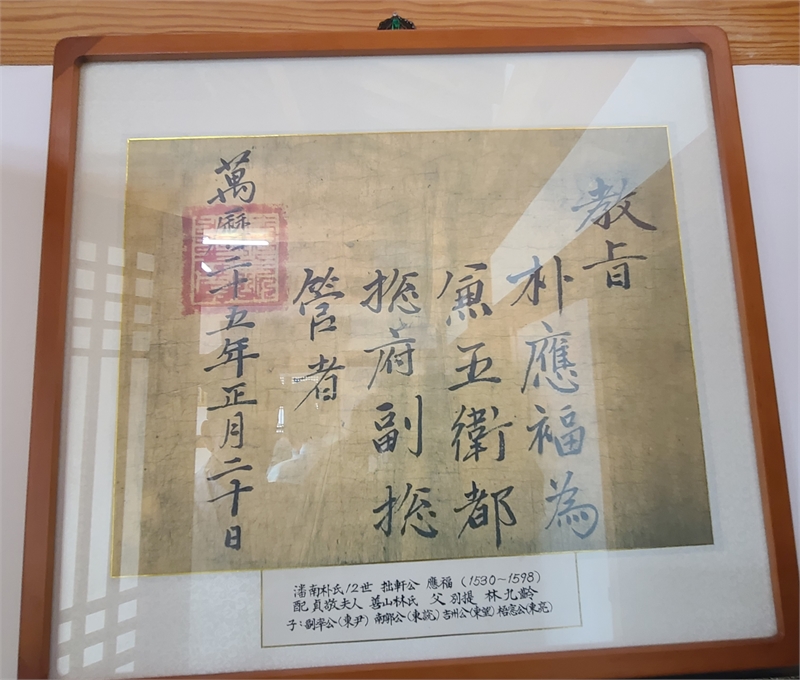 教旨
朴應福為
兼五衛都
摠府副摠
管者
萬曆二十五年正月二十日
潘南朴氏12世 拙軒公 應福 (1530~1598)
配 貞敬夫人 善山林氏 父 別提 林九齡
子:劄率公(東尹) 南郭公(東說) 吉州公(東望) 梧窓公(東亮)